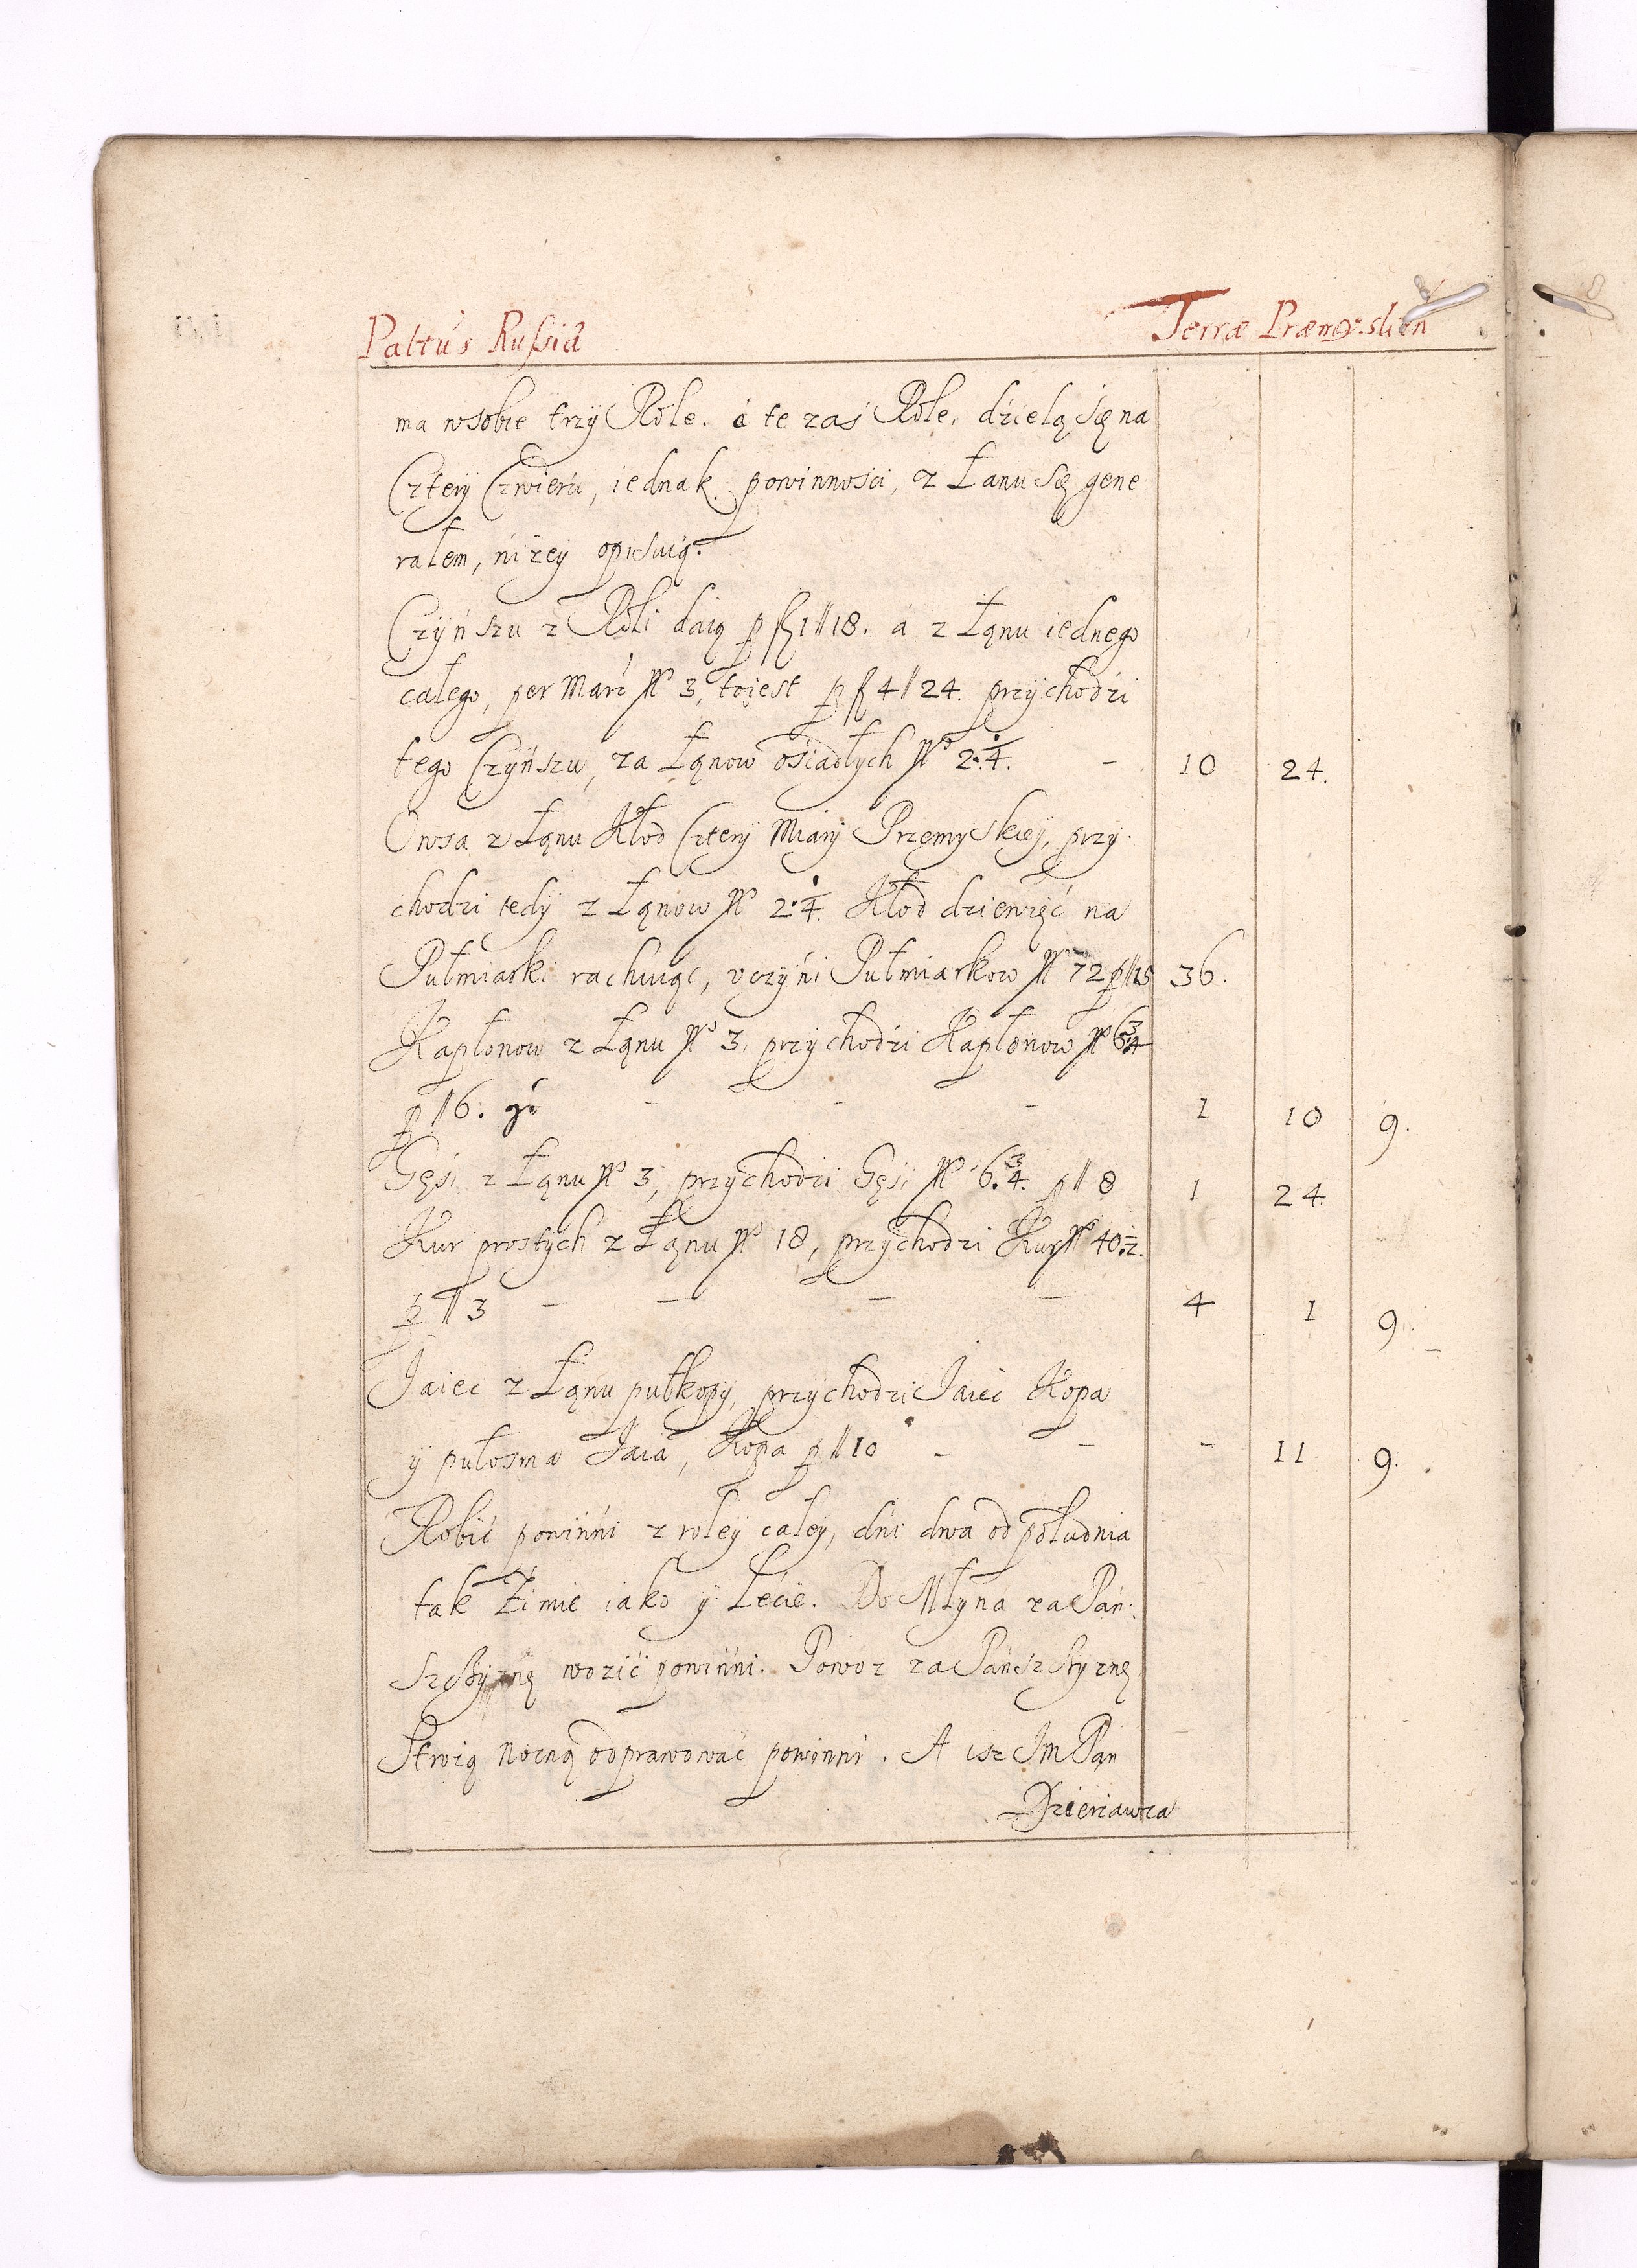 Paltus Russiæ Terræ Præmysslien
ma w sobie trzy Role. á te zaś Role, dzielą się na
Cztery Czwierci, iednak powinności, z Łanu się gene
rałem, niżey opisuią.
Czyńszu z Roli daią p f 1 ‖ 18. á z Łanu iednego
całego, per Marc N° 3, toiest p f 4 ‖ 24. przychodzi
tego Czyńszu, za Łanow ośiadłych N° 2. 1/4. - 10 24.
Owsa z Łanu Kłod Cztery Miary Przemyskiey, przy
chodzi tedy z Łanow N° 2. 1/4. Kłod dziewięć na
Pułmiarki rachuiąc, vczyni Pułmiarkow N° 72 p ‖ 15 36.
Kapłonow z Łanu N° 3, przychodzi Kapłonow N° 6 3/4
p ‖ 6. gr - - - 1 10 9.
Gęśi z Łanu N° 3, przychodzi Gęśi N° 6. 3/4. p ‖ 8 1 24.
Kur prostych z Łanu N° 18, przychodzi Kur N° 40. 1/2.
p ‖ 3 - - - - 4 1 9.
Jaiec z Łanu pułkopy, przychodzi Jaiec Kopa
y pułosma Jaia, Kopa p ‖ 10 - - - 11. 9.
Robić powinni z roley całey, dni dwa od południa
tak Zimie iako y Lecie. Do Młyna za Pań:
szczyznę wozić powinni. Powoz za Pańszczyznę
Strożą nocną odprawować powinni. A isz Jm Pan
Dzierzawca